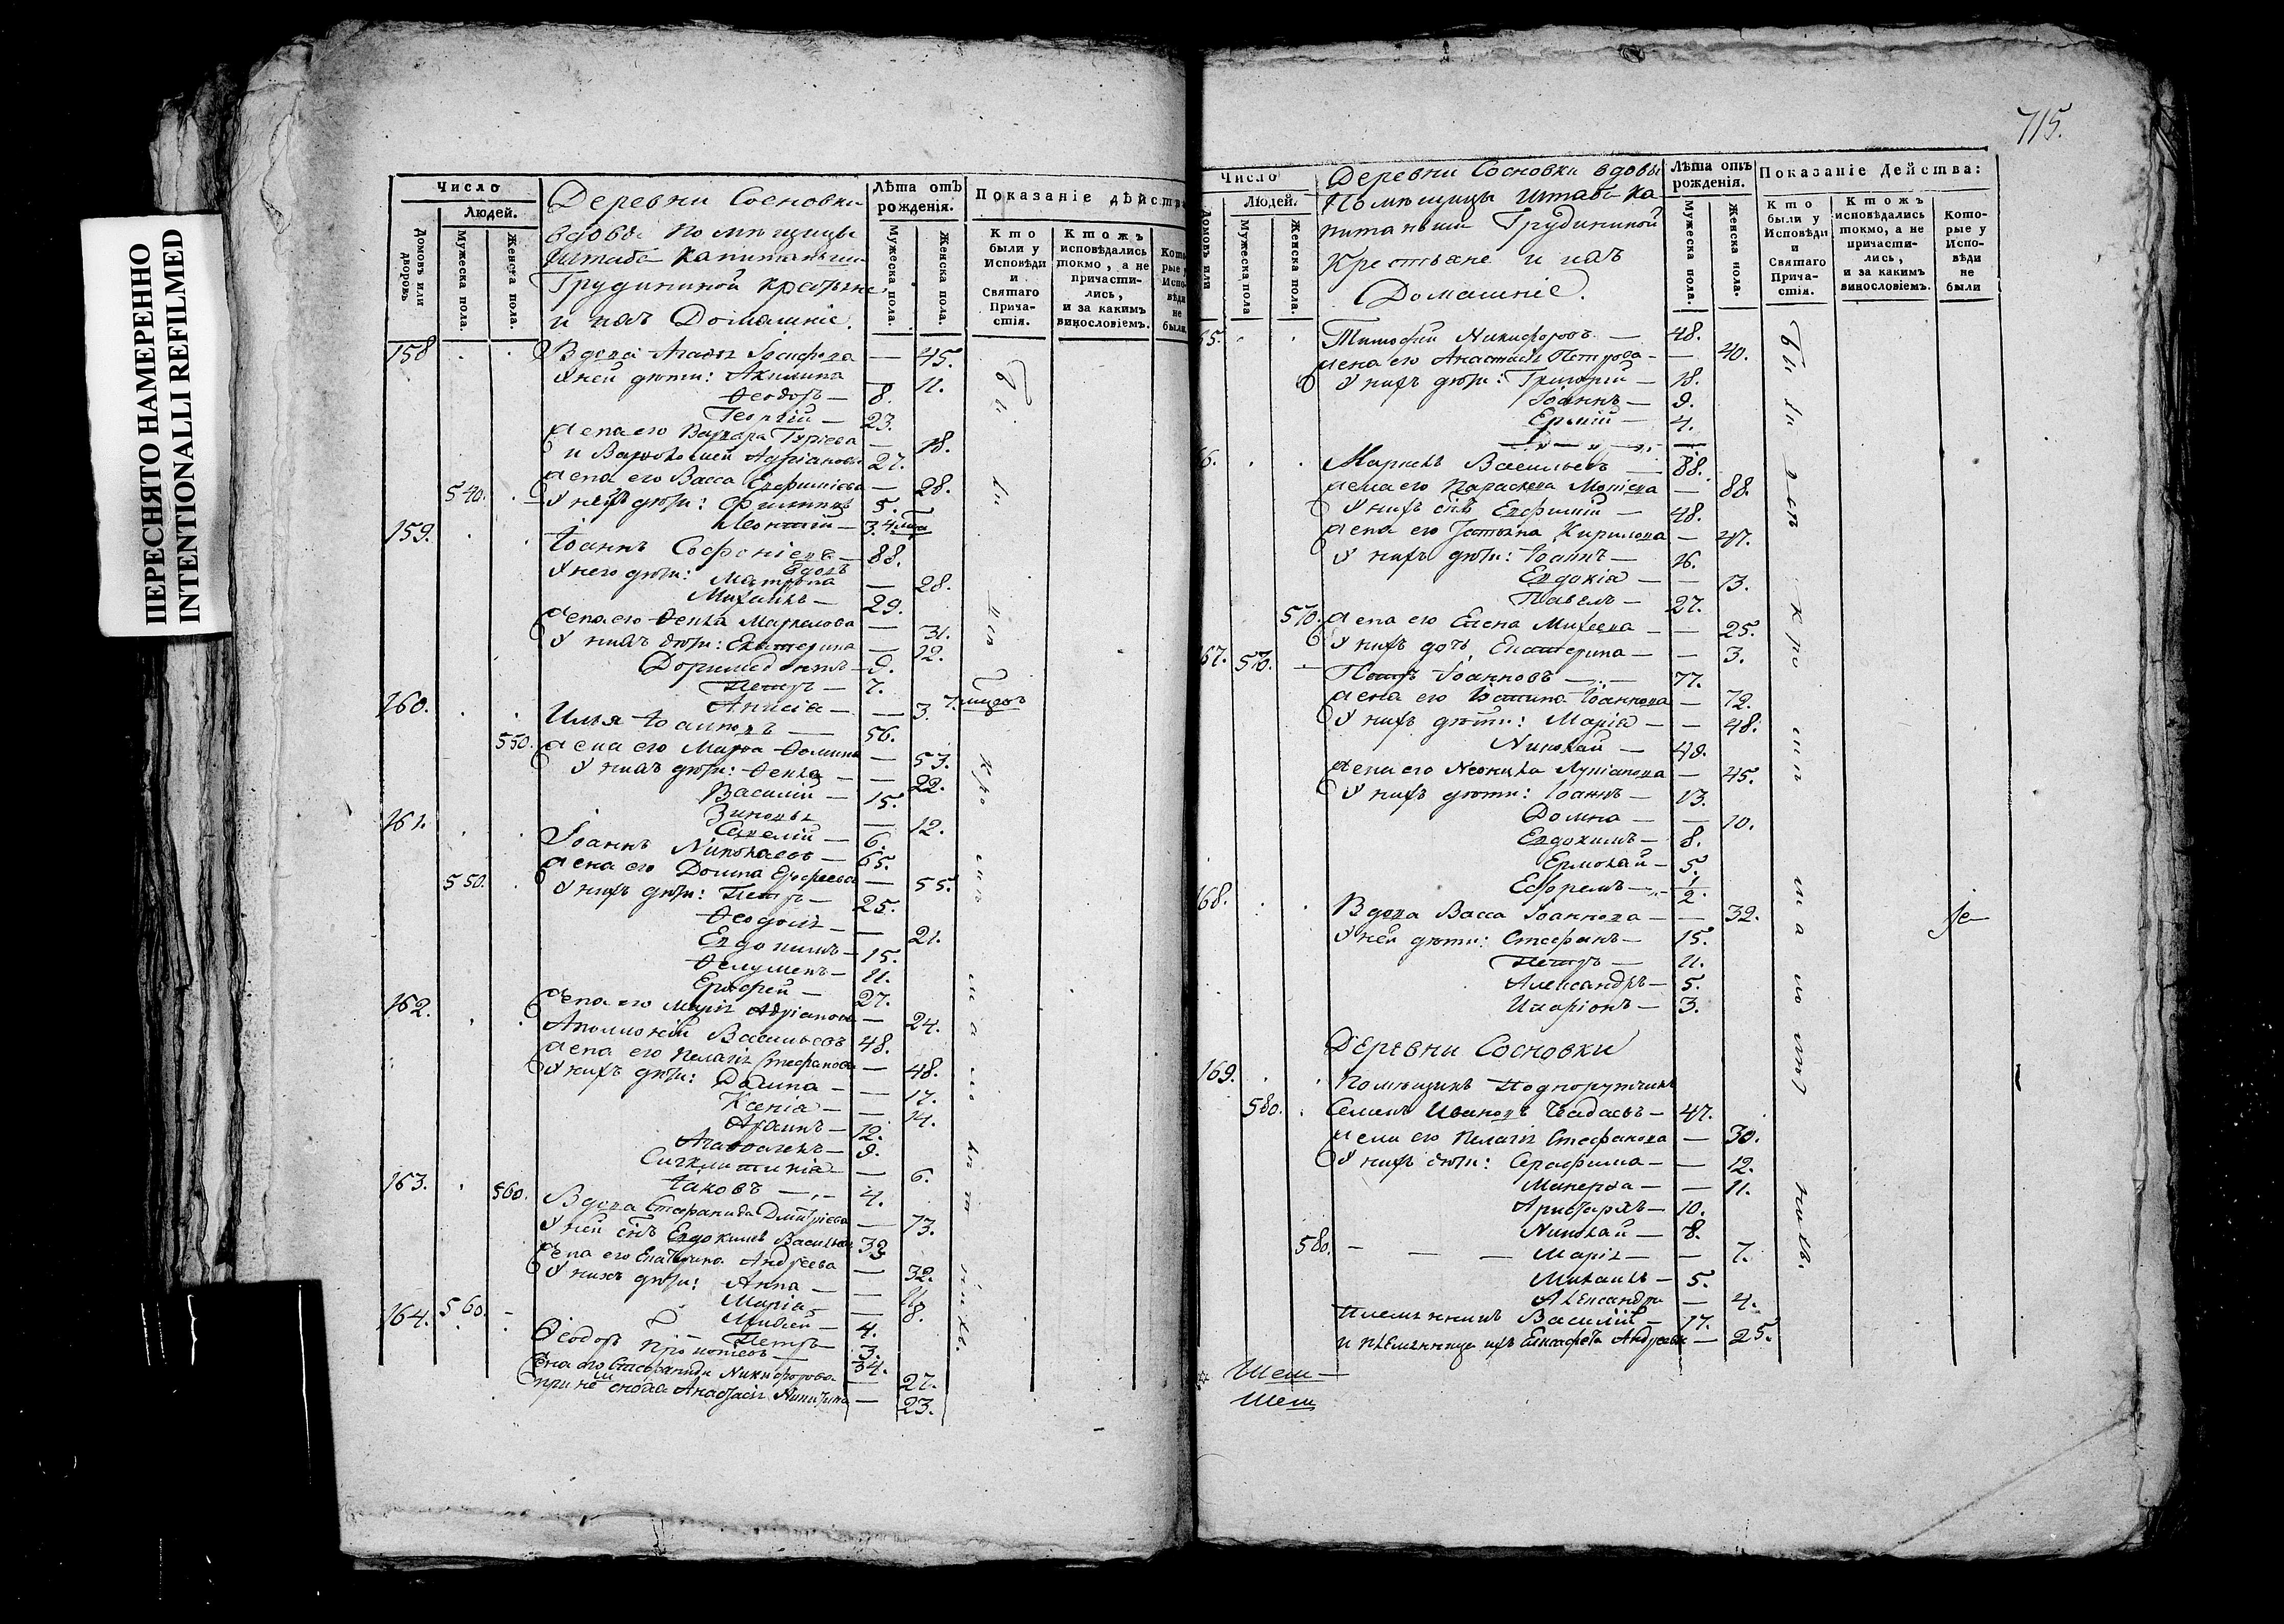 ПЕРЕСНЯТО НАМЕРЕННО
INTENTIONALLI REFILMED
Число
Людей.
Домовъ или дворовъ
Мужеска пола.
Женска пола.
Деревни Сосновки
вдовы помѣщицы
Штабъ Капитанши
Грудининой крестьяне
и ихъ Домашніе.
Лѣта отъ рожденія.
Мужеска пола.
Женска пола.
Показаніе дѣйства
Кто были у Исповѣди и Святаго Прича-стія.
Ктожъ исповѣдались токмо, а не причасти-лись, и за какимъ винословіемъ.
Кото рые у Испо вѣди не были
158 Вдова Агафья Іосифова — 45.
У ней дѣти: Акилина 11.
Ѳеодоръ — 8.
Георгій — 23.
жена его Варвара Гуріева — 18.
и Варфоломей Адріановъ 27.
жена его Васса Евфиміева — 28.
540. У нихъ дѣти: Филиппъ 5.
Леонтій — 3.
159. Іоаннъ Софоніевъ — 88.
вдовъ
У него дѣти: Матрона — 28.
Михаилъ — 29.
жена его Ѳекла Маркелова — 31.
У нихъ дѣти: Екатерина — 12.
Доримедонтъ — 9.
Петръ — 7.
Анисіа — 3.
160. Илья Іоанновъ — 56.
550. жена его Марѳа Ѳомина — 53.
У нихъ дѣти: Ѳекла — 22.
Василій — 15.
Зиновья — 12.
Савелій — 6.
161. Іоаннъ Николаевъ — 65.
жена его Домна Ерофеева — 55.
550. У нихъ дѣти: Петръ — 25.
Ѳеодоль — 21.
Евдокимъ — 15.
Филуменъ — 11.
Ерофей — 27.
жена его Марія Адріанова — 24.
162. Аполлоній Васильевъ 48.
жена его Пелагія Стефанова — 48.
У нихъ дѣти: Домна — 17.
Ксеніа — 14.
12.
9.
Сигклитикіа — 6.
Іаковъ — 4.
163. 560. Вдова Стефанида Дмитріева — 73.
У ней сынъ Евдокимъ Васильевъ 39.
жена его Екатерина Андреева — 32.
У нихъ дѣти: Анна — 11.
Маріа — 8.
4.
Петръ — 3.
164. 560. Ѳеодоръ 34.
жена его Стефанида Никифорова — 27.
при немъ сноха Анастасія Никитина — 23.
715.
Число
Людей.
Домовъ или
Мужеска пола
Женска пола.
Деревни Сосновки вдовы
Помѣщицы Штабъ Ка
питанши Грудининой
Крестьяне и ихъ
Домашніе.
Лѣта отъ рожденія.
Мужеска пола.
Женска пола.
Показаніе Действа:
Кто были у Исповѣди и Святаго Прича-стія.
Ктожъ исповѣдались токмо, а не причасти-лись, и за какимъ винословіемъ.
Кото-рые у Испо-вѣди не были
65. Тимофей Никифоровъ — 48.
жена его Анастасія Петрова — 40.
У нихъ дѣти: Григорій — 18.
Іоаннъ — 9.
Ермій — 4.
66. Маркелъ Васильевъ — 88.
жена его Параскева Моисева — 88.
У нихъ сынъ Евфимій — 48.
жена его Татьяна Кирилова — 47.
У нихъ дѣти: Іоаннъ — 16.
Евдокіа — 13.
Павелъ — 27.
570. жена его Елена Михеева — 25.
У нихъ дочь Екатерина — 3.
167. 570. Петръ Іоанновъ — 77.
жена его Іустина Іоаннова — 72.
У нихъ дѣти: Маріа — 48.
Николай — 48.
жена его Неонила Лукіанова — 45.
У нихъ дѣти: Іоаннъ — 13.
Домна — 10.
Евдокимъ — 8.
Ермолай — 5.
Ефремъ — 1/2.
168. Вдова Васса Іоаннова — 32.
У ней дѣти: Стефанъ — 15.
Петръ — 11.
Александръ — 5.
Иларіонъ — 3.
Деревни Сосновки
169. Помѣщикъ Подпорутчикъ
580. Семенъ Ивановъ — 47.
жена его Пелагія Стефанова — 30.
У нихъ дѣти: Серафима — 12.
Минерва — 11.
Аристархъ — 10.
Николай — 8.
580. Марія — 7.
Михаилъ — 5.
Александра — 4.
Племянникъ Василій — 17.
и племянница ихъ Елисавета Андреева — 25.